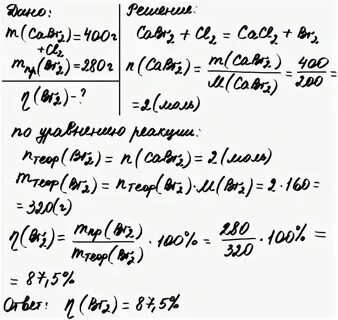 Дано:
m(CaBr₂)=400г
+Cl₂
mпр(Br₂)=280г
η(Br₂)-?
Решение:
CaBr₂ + Cl₂ = CaCl₂ + Br₂
n(CaBr₂) = m(CaBr₂)/M(CaBr₂) = 400/200 =
=2(моль)
по уравнению реакции:
nтеор(Br₂) = n(CaBr₂) = 2(моль)
mтеор(Br₂) = nтеор(Br₂)·M(Br₂) = 2·160 =
= 320(г)
η(Br₂) = mпр(Br₂)/mтеор(Br₂) · 100% = 280/320 · 100% =
= 87,5%
Ответ: η(Br₂) = 87,5%